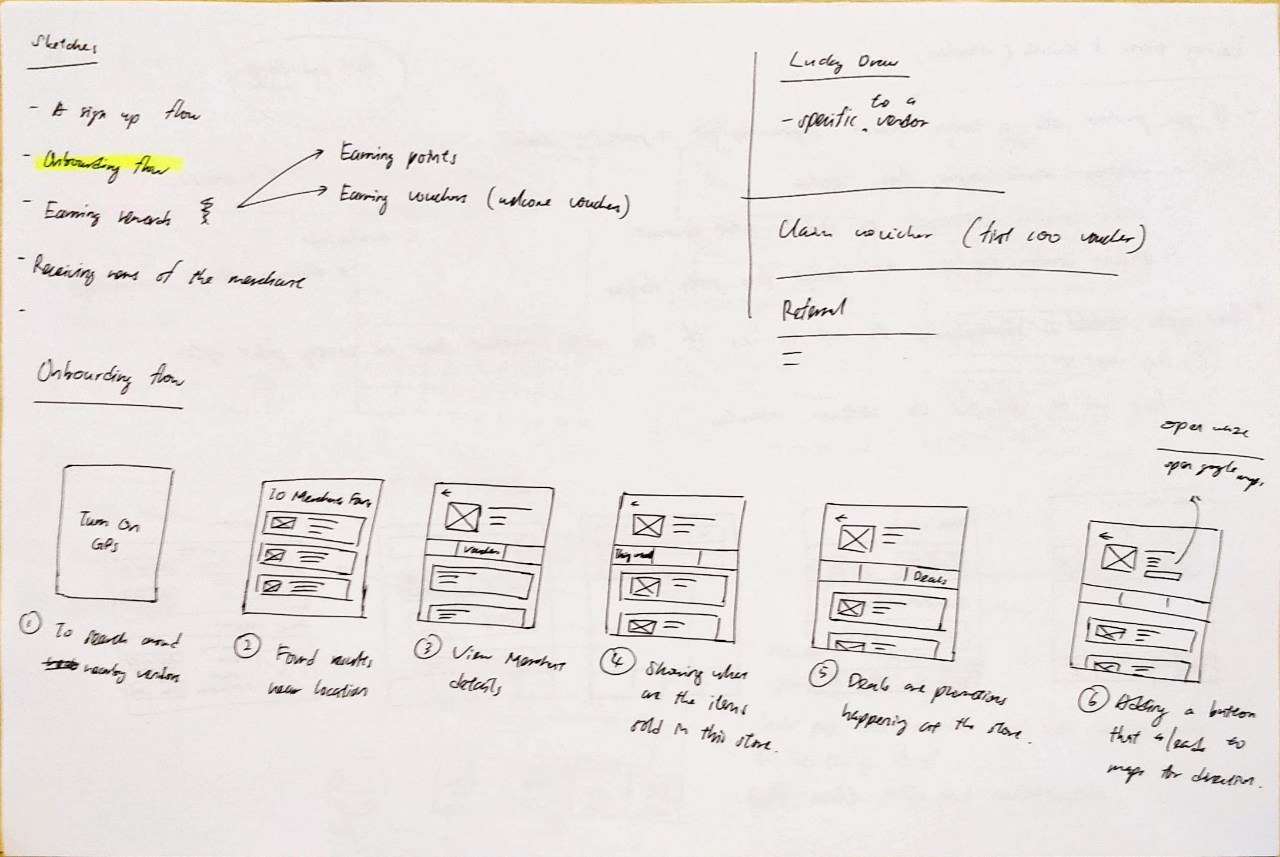 Sketches
- A sign up flow
- Onbourding flow
- Earning rewards
Earning points
Earning vouchers (welcome voucher)
- Receiving news of the merchant
-
Lucky Draw
- specific to a vendor
Claim voucher (first 100 voucher)
Referral
Onbourding flow
Turn On
GPS
① To search around
nearby vendors
10 Merchants Found
② Found results
near location
Voucher
③ View Merchant
details
④ Showing what
are the items
sold in this store.
Deals
⑤ Deals are promotions
happening at the store.
open waze
open google maps.
⑥ Adding a button
that leads to
maps for direction.